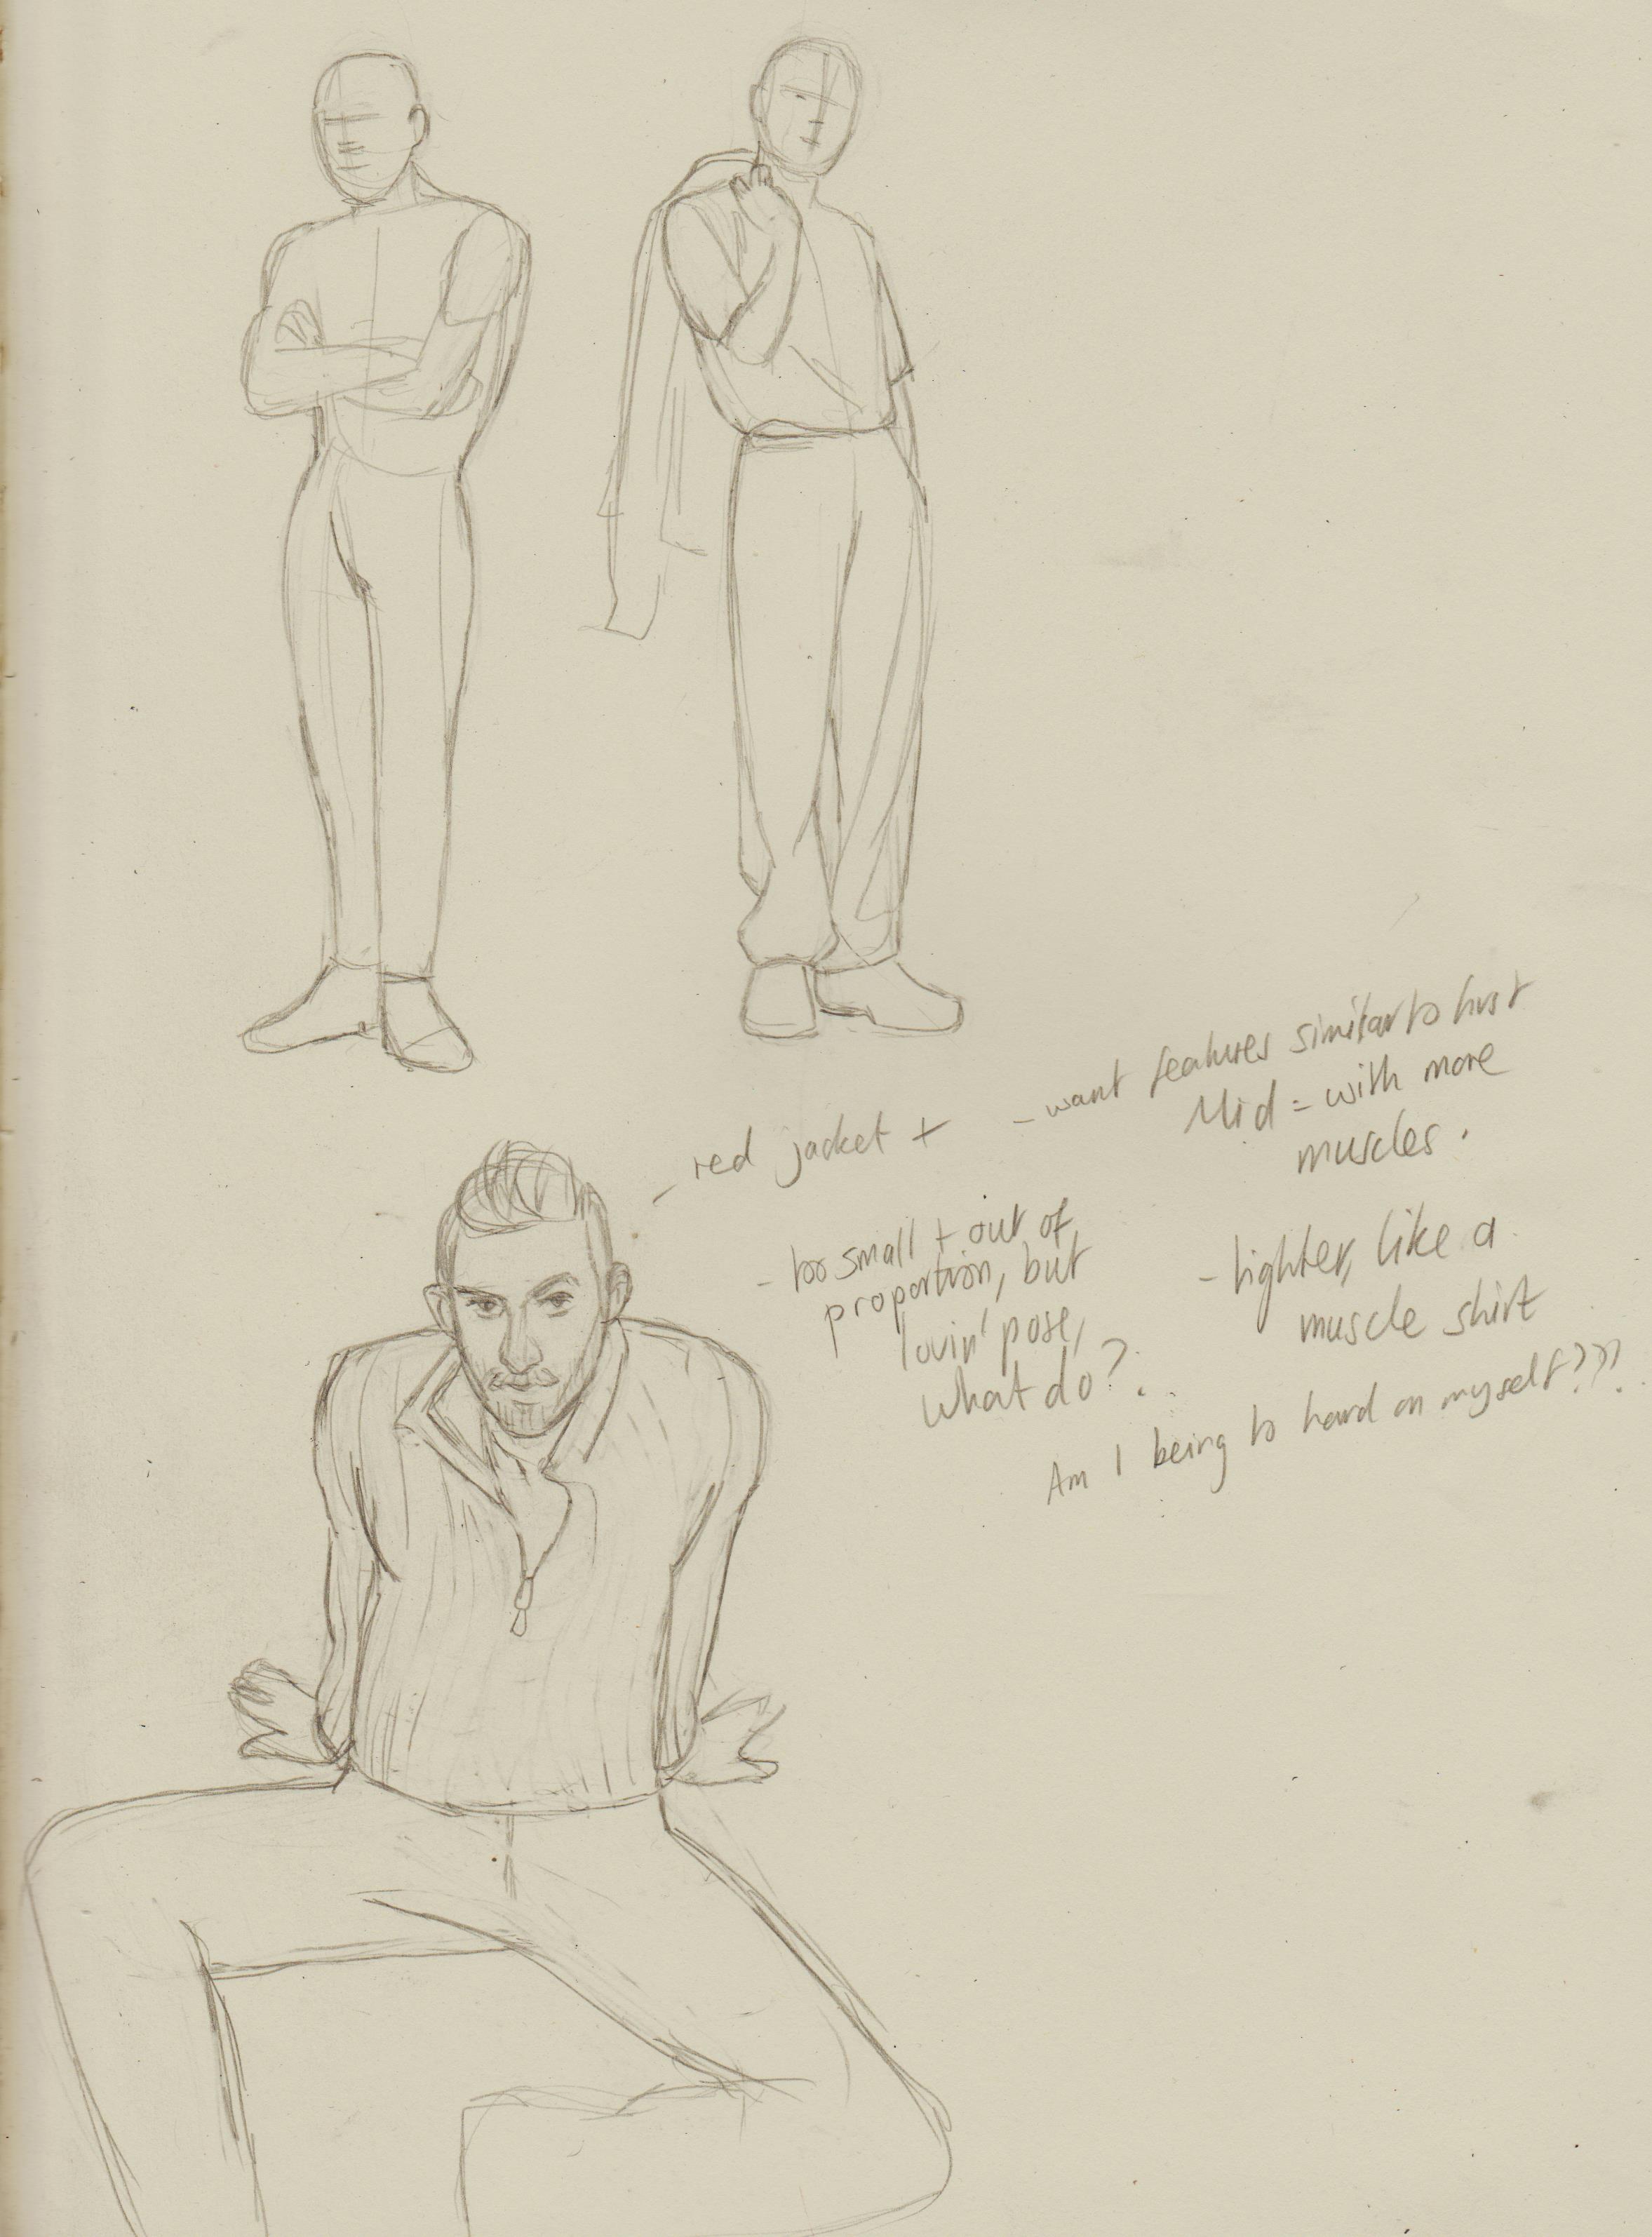 - red jacket +
- want features similar to first
Mid = with more
muscles.
- too small + out of
proportion, but
lovin' pose,
what do?
- lighter, like a
muscle shirt
Am I being to hard on myself???